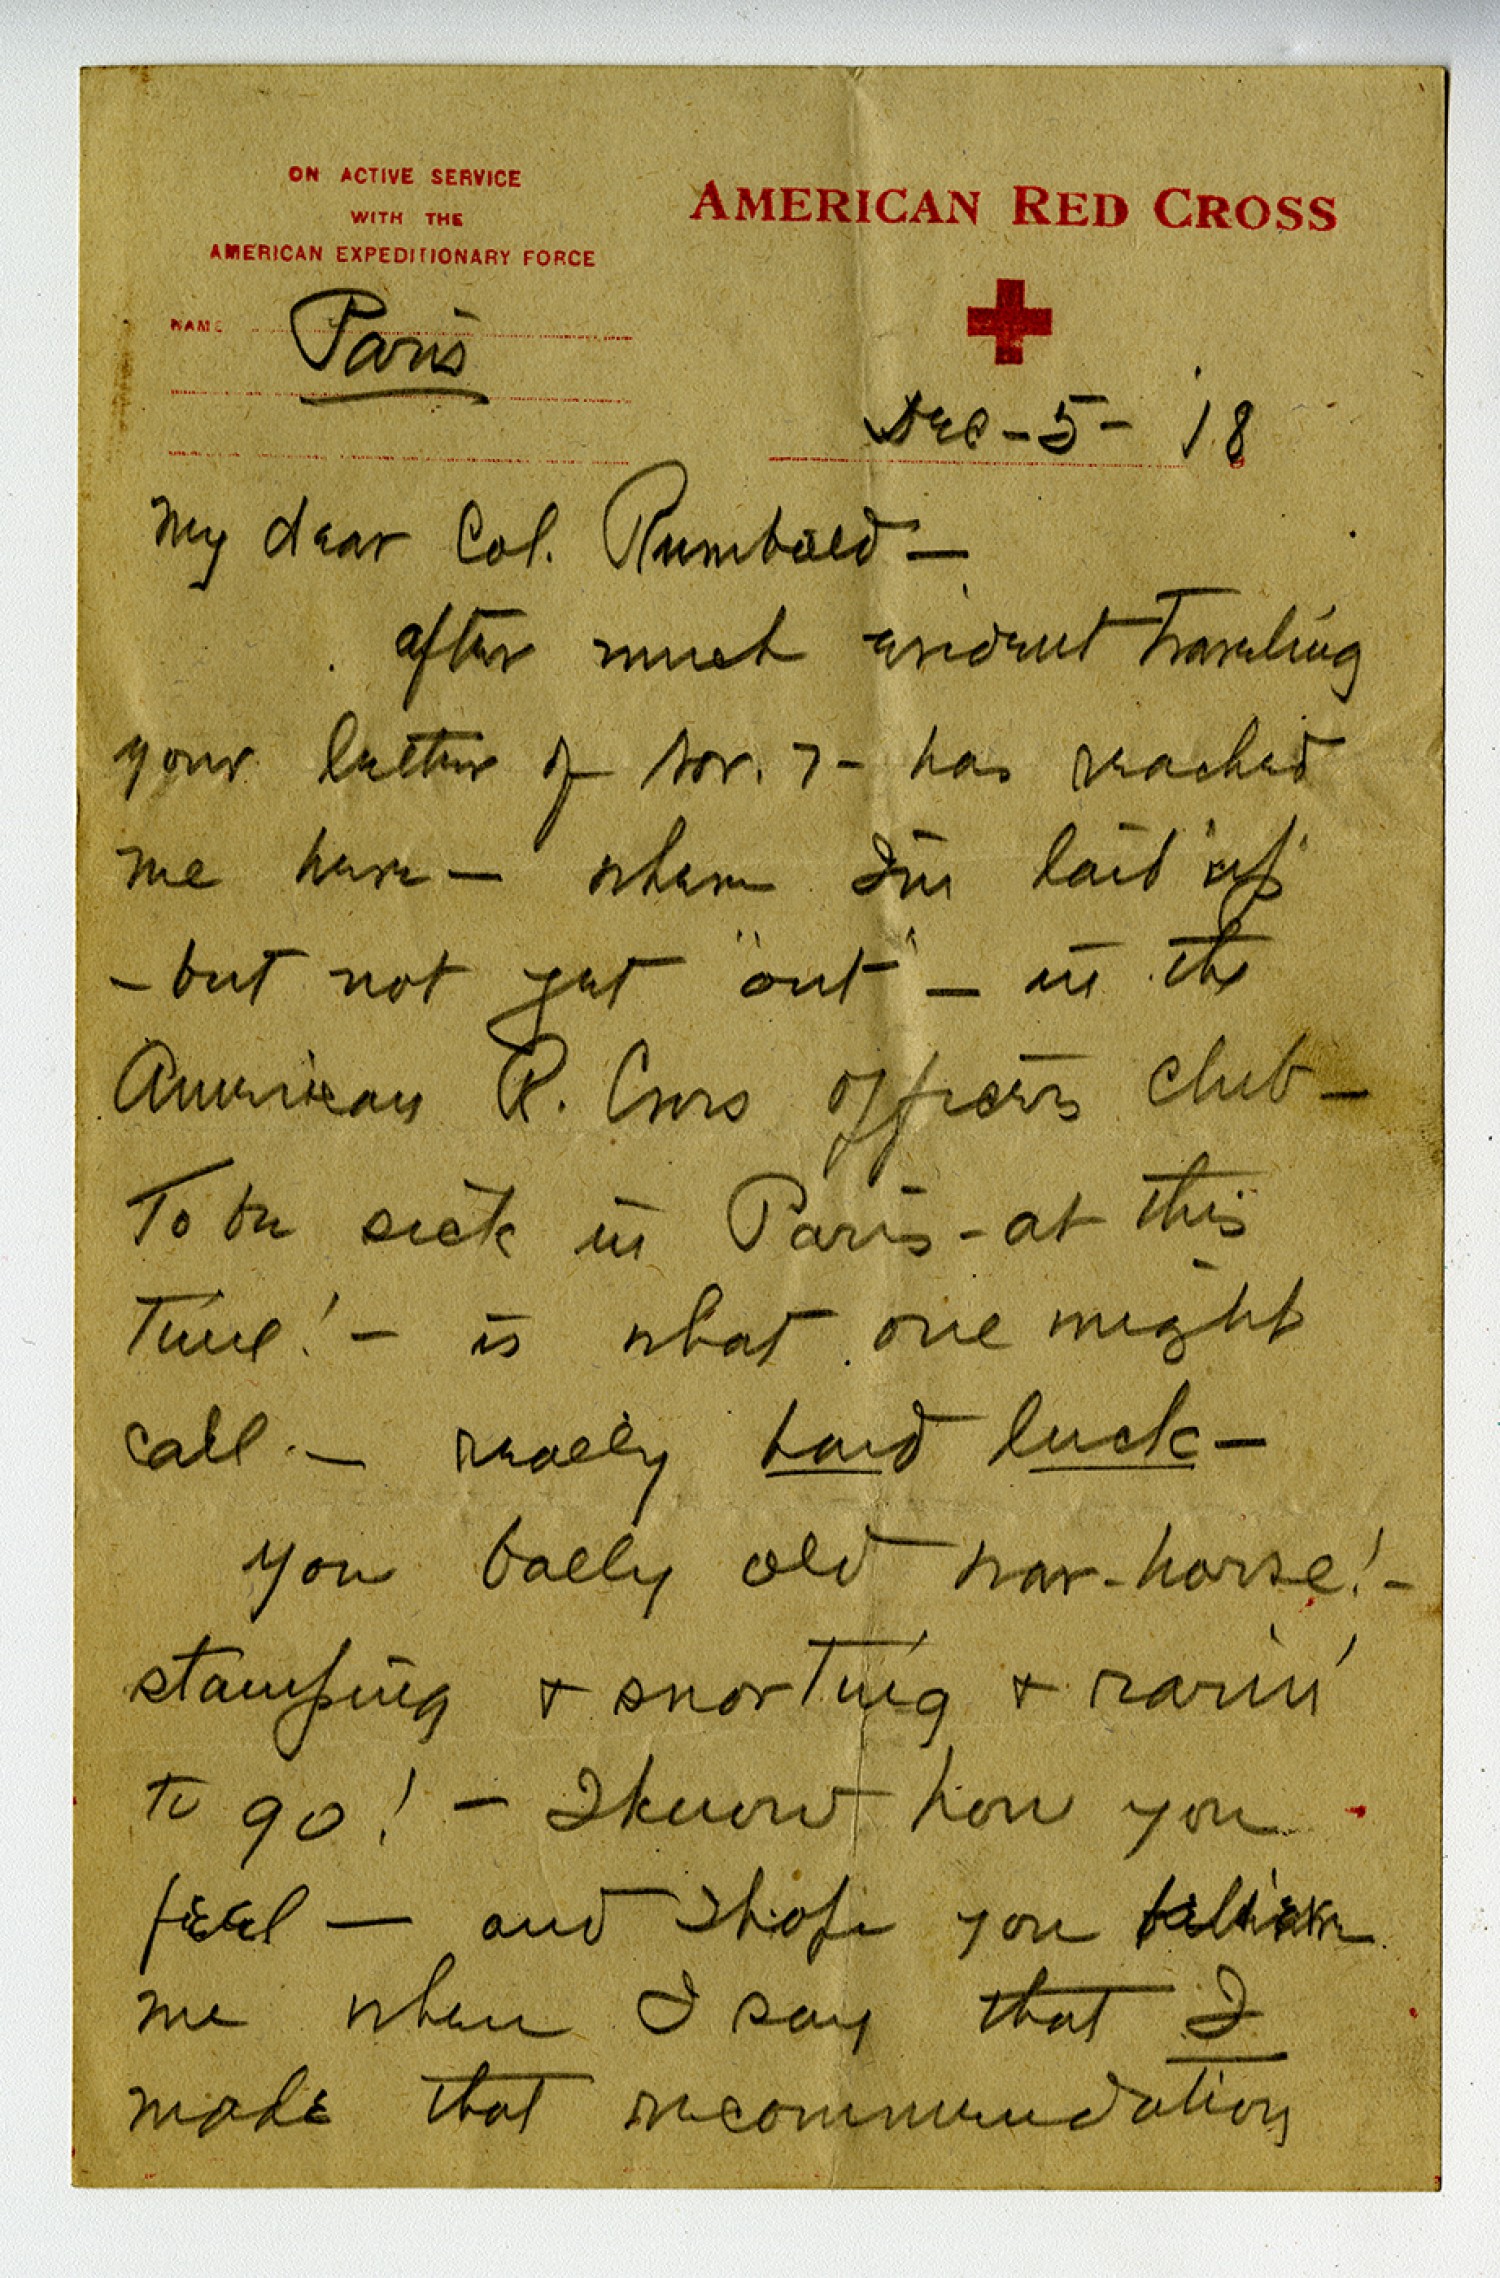 ON ACTIVE SERVICE
WITH THE
AMERICAN EXPEDITIONARY FORCE
AMERICAN RED CROSS
NAME
Paris
Dec - 5 - 18
My dear Col. Rumbold —
after much evident traveling
your letter of Nov. 7 - has reached
me here — where I'm laid "up"
- but not yet "out" — in the
American R. Cross officers club —
To be sick in Paris - at this
time! — is what one might
call — really hard luck —
You bally old war-horse! -
stamping & snorting & rarin'
to go! — I know how you
feel — and I hope you believe
me when I say that I
made that recommendation